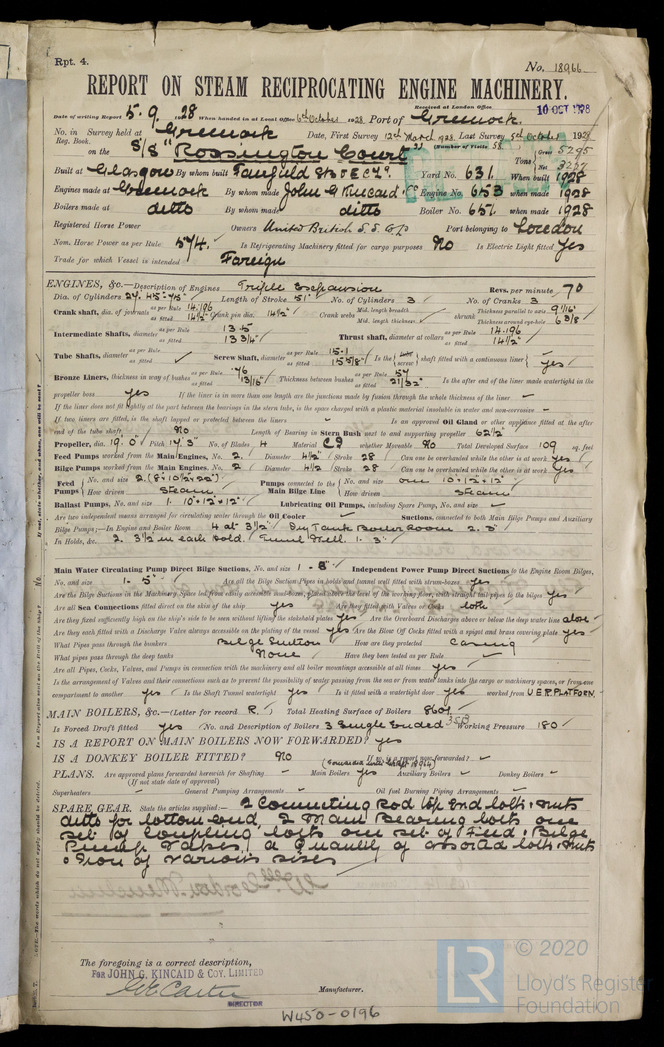 Rpt. 4.
No. 18966
REPORT ON STEAM RECIPROCATING ENGINE MACHINERY.
Received at London Office 10 OCT 1928
Date of writing Report 5. 9. 1928 When handed in at Local Office 6th October 1928 Port of Greenock.
No. in Reg. Book. Survey held at Greenock Date, First Survey 12th March 1928 Last Survey 5th October 1928
on the S/S "Rossington Court" (Number of Visits 58
Tons Gross 5295 Net 3227
Built at Glasgow By whom built Fairfield Yard No. 631 When built 1928
Engines made at Greenock By whom made John G Kincaid & Co Engine No. 653 when made 1928
Boilers made at ditto By whom made ditto Boiler No. 651 when made 1928
Registered Horse Power Owners United British S.S. Port belonging to London
Nom. Horse Power as per Rule 574. Is Refrigerating Machinery fitted for cargo purposes No Is Electric Light fitted Yes
Trade for which Vessel is intended Foreign
ENGINES, &c.—Description of Engines Triple Expansion Revs. per minute 70
Dia. of Cylinders Length of Stroke 51" No. of Cylinders 3 No. of Cranks 3
Crank shaft, dia. of journals as per Rule 14.196 as fitted 14½" Crank pin dia. 14½" Crank webs Mid. length breadth Mid. length thickness shrunk Thickness parallel to axis 9 1/16" Thickness around eye-hole 6 3/8"
Intermediate Shafts, diameter as per Rule 13.5 as fitted 13 3/4" Thrust shaft, diameter at collars as per Rule 14.196 as fitted 14½"
Tube Shafts, diameter as per Rule as fitted Screw Shaft, diameter as per Rule 15.1 as fitted 15 5/8" Is the screw shaft fitted with a continuous liner yes
Bronze Liners, thickness in way of bushes as per Rule .76 as fitted 13/16" Thickness between bushes as per Rule .57 as fitted 21/32" Is the after end of the liner made watertight in the
propeller boss yes If the liner is in more than one length are the junctions made by fusion through the whole thickness of the liner –
If the liner does not fit tightly at the part between the bearings in the stern tube, is the space charged with a plastic material insoluble in water and non-corrosive –
If two liners are fitted, is the shaft lapped or protected between the liners Is an approved Oil Gland or other appliance fitted at the after
end of the tube shaft No Length of Bearing in Stern Bush next to and supporting propeller 62½"
Propeller, dia. 19'.0" Pitch 17'.3" No. of Blades 4 Material whether Moveable No Total Developed Surface 109 sq. feet
Feed Pumps worked from the Main Engines, No. 2. Diameter 4½" Stroke 28 Can one be overhauled while the other is at work yes
Bilge Pumps worked from the Main Engines, No. 2 Diameter 4½ Stroke 28 Can one be overhauled while the other is at work yes
Feed Pumps No. and size How driven Steam Pumps connected to the Main Bilge Line No. and size one 10"×12"×12" How driven Steam
Ballast Pumps, No. and size 1. 10"×12"×12" Lubricating Oil Pumps, including Spare Pump, No. and size –
Are two independent means arranged for circulating water through the Oil Cooler Suctions, connected to both Main Bilge Pumps and Auxiliary
Bilge Pumps:—In Engine and Boiler Room 4 at 3½" Dry Tank Boiler Room 2. 3"
In Holds, &c. 2. 3½ in each Hold. Tunnel Well. 1. 3"
Main Water Circulating Pump Direct Bilge Suctions, No. and size 1 - 8" Independent Power Pump Direct Suctions to the Engine Room Bilges,
No. and size 1. 5" Are all the Bilge Suction Pipes in holds and tunnel well fitted with strum-boxes yes
Are the Bilge Suctions in the Machinery Space led from easily accessible mud-boxes, placed above the level of the working floor, with straight tail pipes to the bilges yes
Are all Sea Connections fitted direct on the skin of the ship yes Are they fitted with Valves or Cocks both
Are they fixed sufficiently high on the ship's side to be seen without lifting the stokehold plates yes Are the Overboard Discharges above or below the deep water line above
Are they each fitted with a Discharge Valve always accessible on the plating of the vessel yes Are the Blow Off Cocks fitted with a spigot and brass covering plate yes
What Pipes pass through the bunkers Bilge Suction How are they protected Casing
What pipes pass through the deep tanks None Have they been tested as per Rule –
Are all Pipes, Cocks, Valves, and Pumps in connection with the machinery and all boiler mountings accessible at all times yes
Is the arrangement of Valves and their connections such as to prevent the possibility of water passing from the sea or from water tanks into the cargo or machinery spaces, or from one
compartment to another yes Is the Shaft Tunnel watertight yes Is it fitted with a watertight door yes worked from U.E.R. PLATFORM.
MAIN BOILERS, &c.—(Letter for record R. Total Heating Surface of Boilers 8601
Is Forced Draft fitted yes No. and Description of Boilers 3 Single Ended 3SB Working Pressure 180
IS A REPORT ON MAIN BOILERS NOW FORWARDED? yes
IS A DONKEY BOILER FITTED? No If so, is a report now forwarded? –
PLANS. Are approved plans forwarded herewith for Shafting – Main Boilers yes Auxiliary Boilers – Donkey Boilers –
(If not state date of approval)
Superheaters – General Pumping Arrangements – Oil fuel Burning Piping Arrangements –
SPARE GEAR. State the articles supplied:— 2 Connecting Rod Top End bolts & Nuts
ditto for bottom end, 2 Main Bearing bolts one
set of Coupling bolts one set of Feed & Bilge
Pump Valves, a Quantity of assorted bolts & Nuts
& Iron of various sizes
The foregoing is a correct description,
FOR JOHN G. KINCAID & COY. LIMITED
DIRECTOR
Manufacturer.
W450-0196
LR
© 2020
Lloyd's Register
Foundation